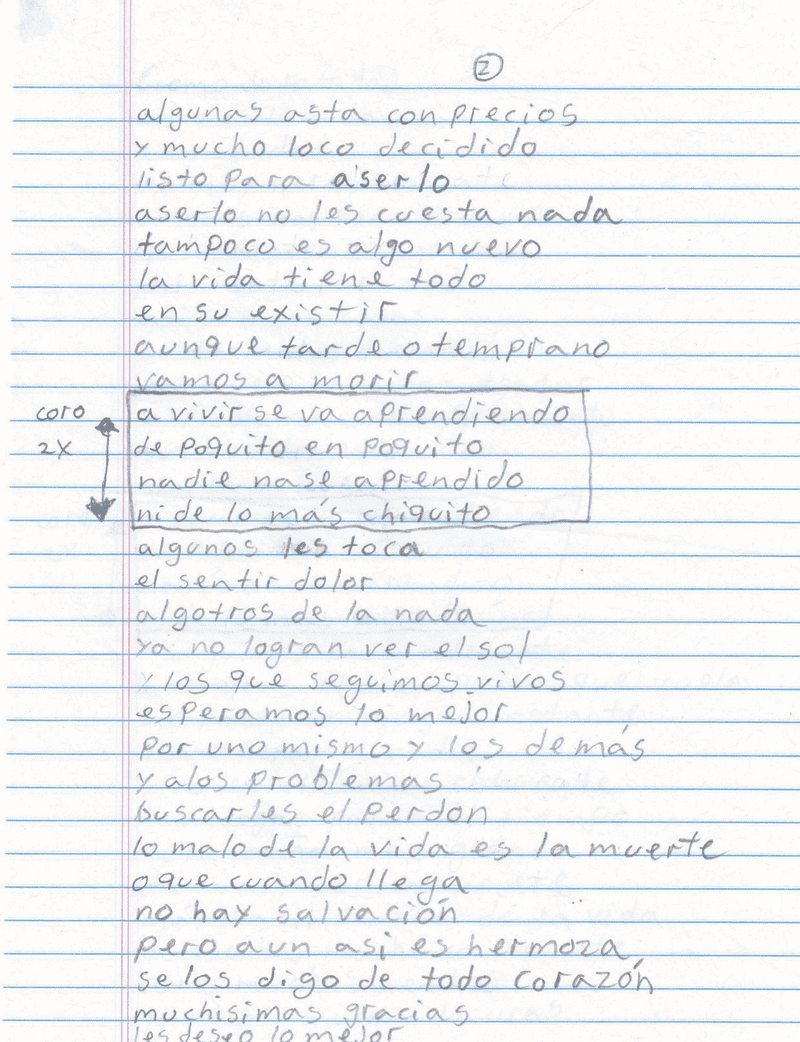 2
algunas asta con precios
y mucho loco decidido
listo para aserlo
aserlo no les cuesta nada
tampoco es algo nuevo
la vida tiene todo
en su existir
aunque tarde o temprano
vamos a morir
coro
2x
a vivir se va aprendiendo
de poquito en poquito
nadie nase aprendido
ni de lo más chiquito
algunos les toca
el sentir dolor
algotros de la nada
ya no logran ver el sol
y los que seguimos vivos
esperamos lo mejor
por uno mismo y los demás
y alos problemas
buscarles el perdon
lo malo de la vida es la muerte
o que cuando llega
no hay salvación
pero aun asi es hermoza,
se los digo de todo corazón
muchisimas gracias
les deseo lo mejor